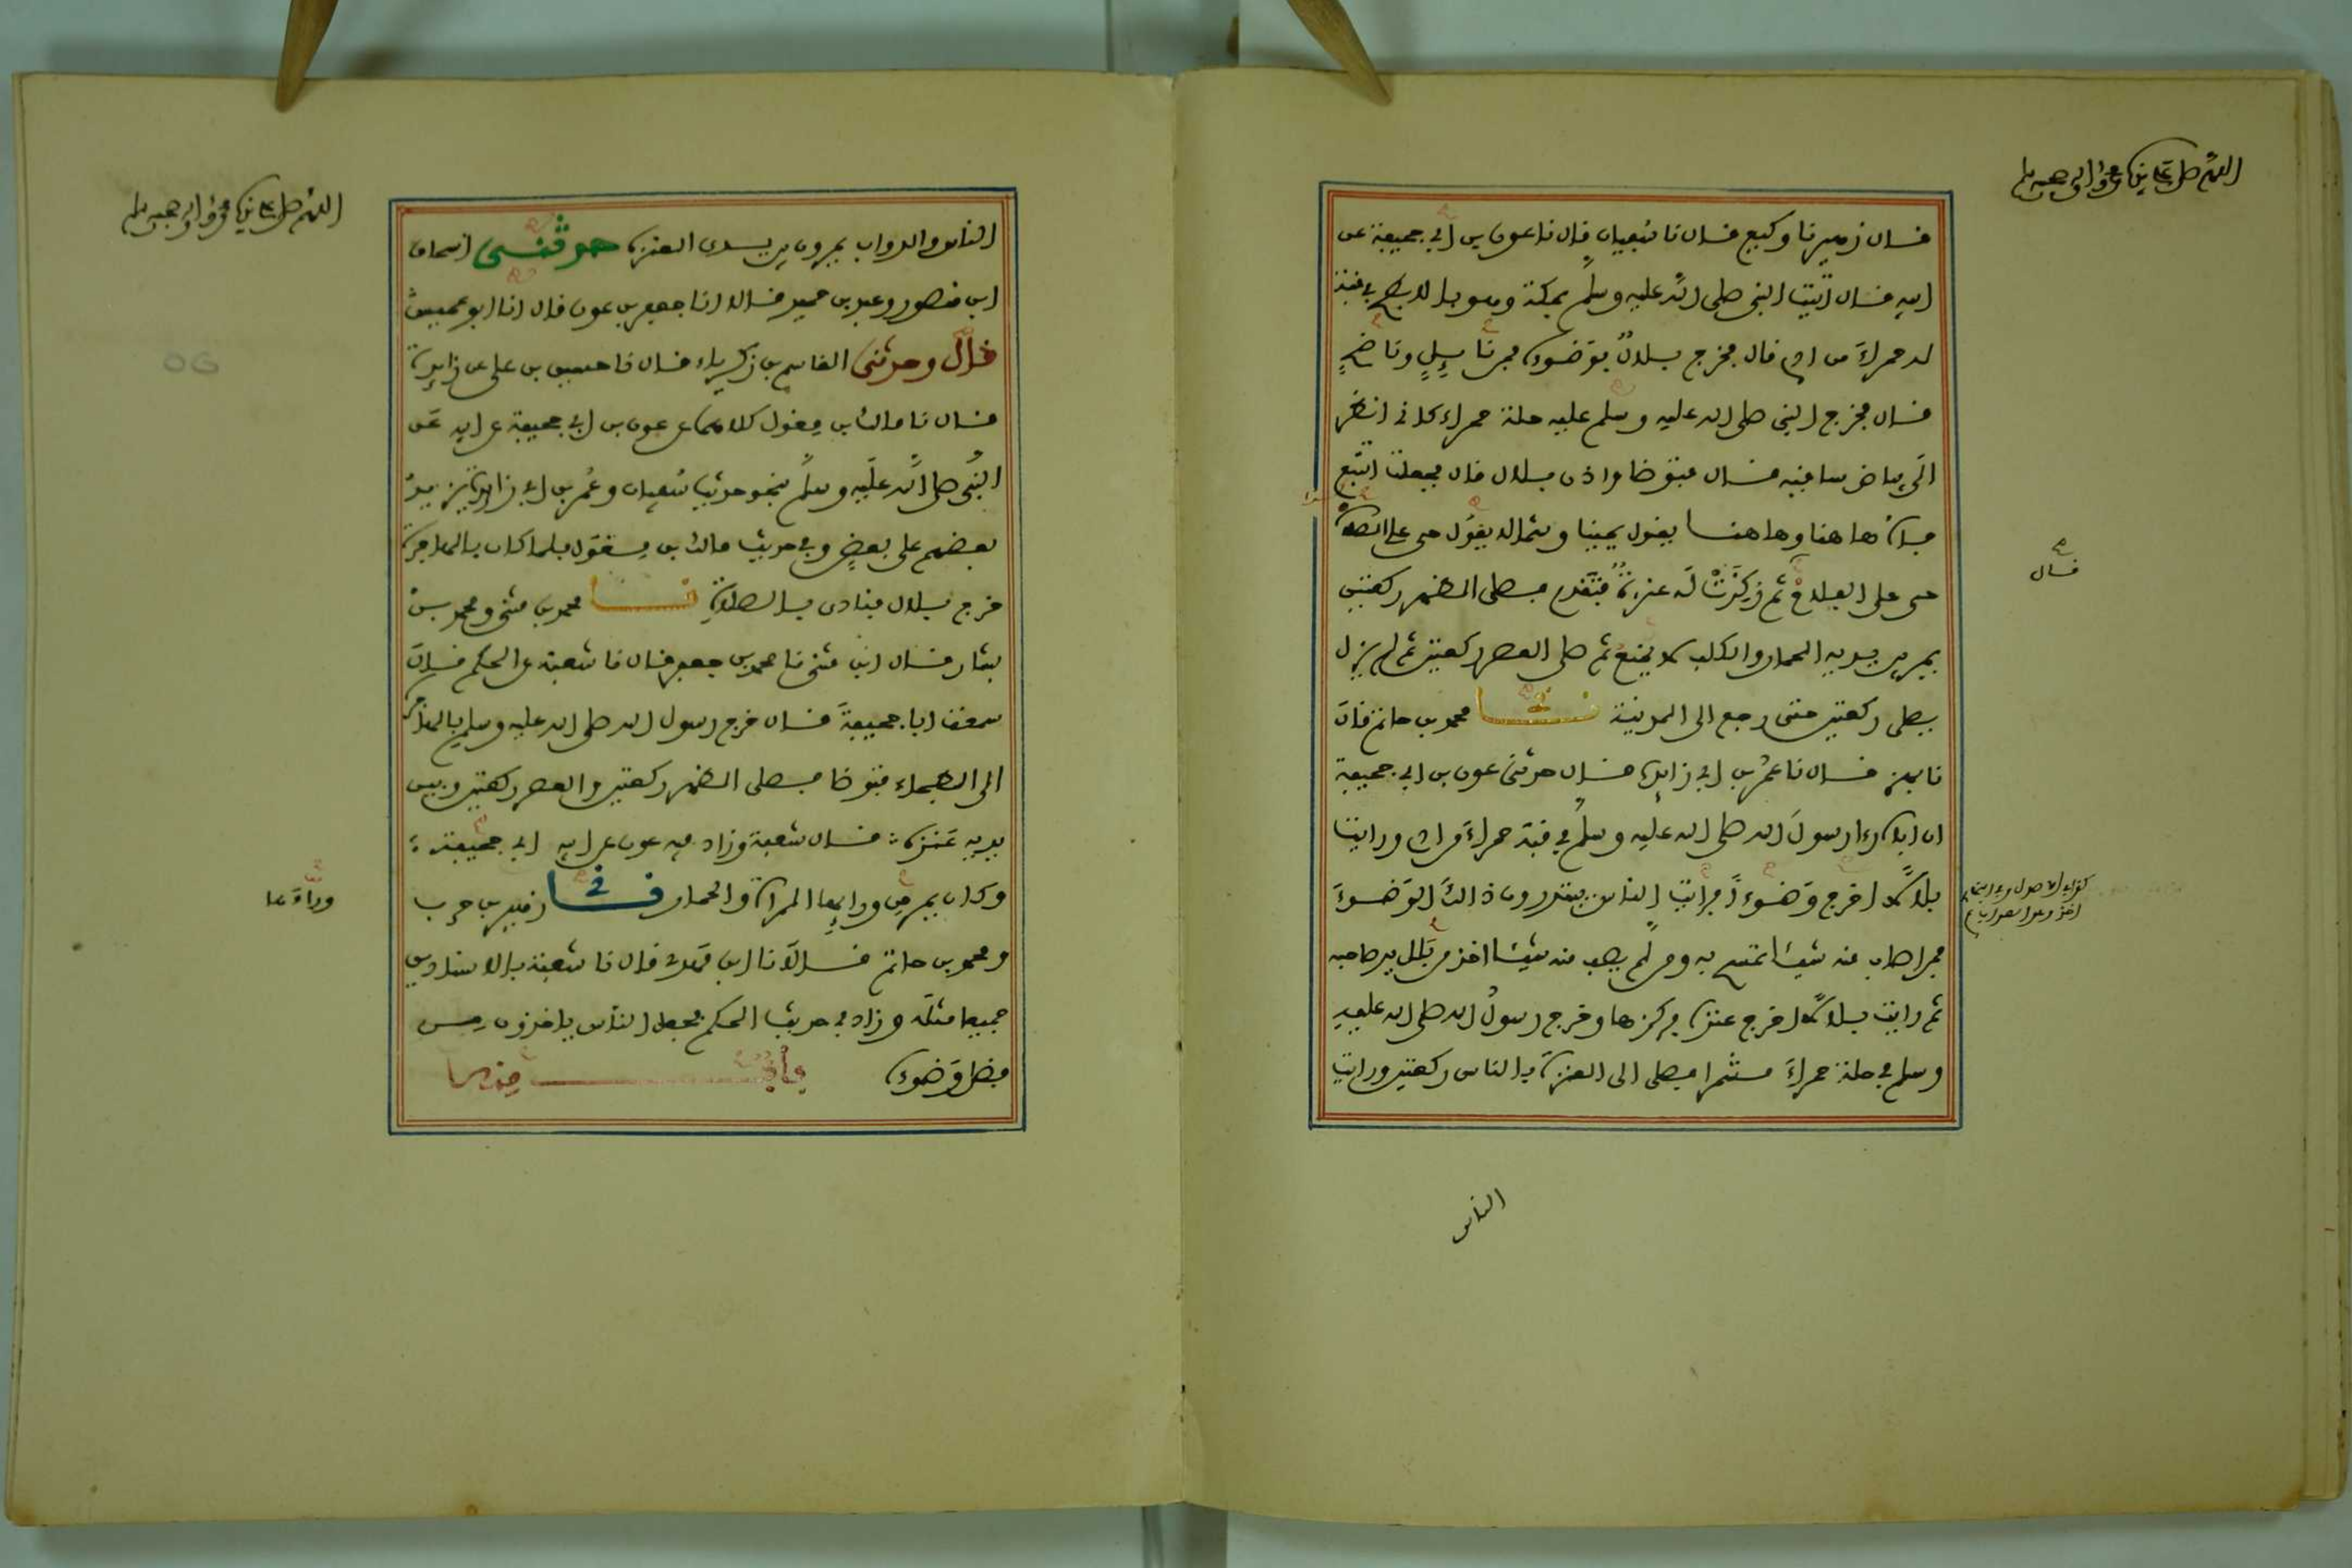 اللهم صل على نبيك محمد وآله وصحبه وسلم
قال زهير نا وكيع قال نا سفيان قال نا عون بن أبي جحيفة عن
أبيه قال أتيت النبي صلى الله عليه وسلم بمكة وهو بالأبطح في قبة
له حمراء من أدم قال فخرج بلال بوضوء فمن نائل وناضح
قال فخرج النبي صلى الله عليه وسلم عليه حلة حمراء كأني أنظر
إلى بياض ساقيه قال فتوضأ وأذن بلال قال فجعلت أتتبع
فاه هاهنا وهاهنا يقول يمينا وشمالا يقول حي على الصلاة
حي على الفلاح ثم ركزت له عنزة فتقدم فصلى الظهر ركعتين
يمر بين يديه الحمار والكلب لا يمنع ثم صلى العصر ركعتين ثم لم يزل
يصلي ركعتين حتى رجع إلى المدينة نا محمد بن حاتم قال
نا بهز قال نا عمر بن أبي زايدة قال حدثني عون بن أبي جحيفة
ان أباه رأى رسول الله صلى الله عليه وسلم في قبة حمراء من أدم ورأيت
بلالا أخرج وضوءا فرأيت الناس يبتدرون ذالك الوضوء
فمن أصاب منه شيئا تمسح به ومن لم يصب منه شيئا أخذ من بلل يد صاحبه
ثم رأيت بلالا أخرج عنزة فركزها وخرج رسول الله صلى الله عليه
وسلم في حلة حمراء مشمرا فصلى إلى العنزة بالناس ركعتين ورأيت
قال
الناس
اللهم صل على نبيك محمد وآله وصحبه وسلم
الناس والدواب يمرون بين يدي العنزة حدثني إسحاق
ابن منصور وعبد بن حميد قالا أنا جعفر بن عون قال أنا أبو عميس
قال وحدثني القاسم بن زكرياء قال نا حسين بن علي عن زايدة
قال نا مالك بن مغول كلاهما عن عون بن أبي جحيفة عن أبيه عن
النبي صلى الله عليه وسلم بنحو حديث سفيان وعمر بن أبي زايدة يزيد
بعضهم على بعض وفي حديث مالك بن مغول فلما كان بالهاجرة
خرج بلال فنادى بالصلاة نا محمد بن مثنى ومحمد بن
بشار قال ابن مثنى نا محمد بن جعفر قال نا شعبة عن الحكم قال
سمعت أبا جحيفة قال خرج رسول الله صلى الله عليه وسلم بالهاجرة
إلى البطحاء فتوضأ فصلى الظهر ركعتين والعصر ركعتين وبين
يديه عنزة قال شعبة وزاد فيه عون عن أبيه أبي جحيفة
وكان يمر من ورائها المرأة والحمار نا زهير بن حرب
ومحمد بن حاتم قالا نا ابن مهدي قال نا شعبة بالاسنادين
جميعا مثله وزاد في حديث الحكم فجعل الناس يأخذون من
فضل وضوئه
وراءها